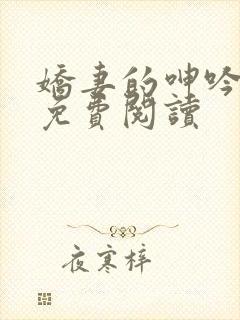 嬌妻的呻吟
免費閱讀
夜寒梓